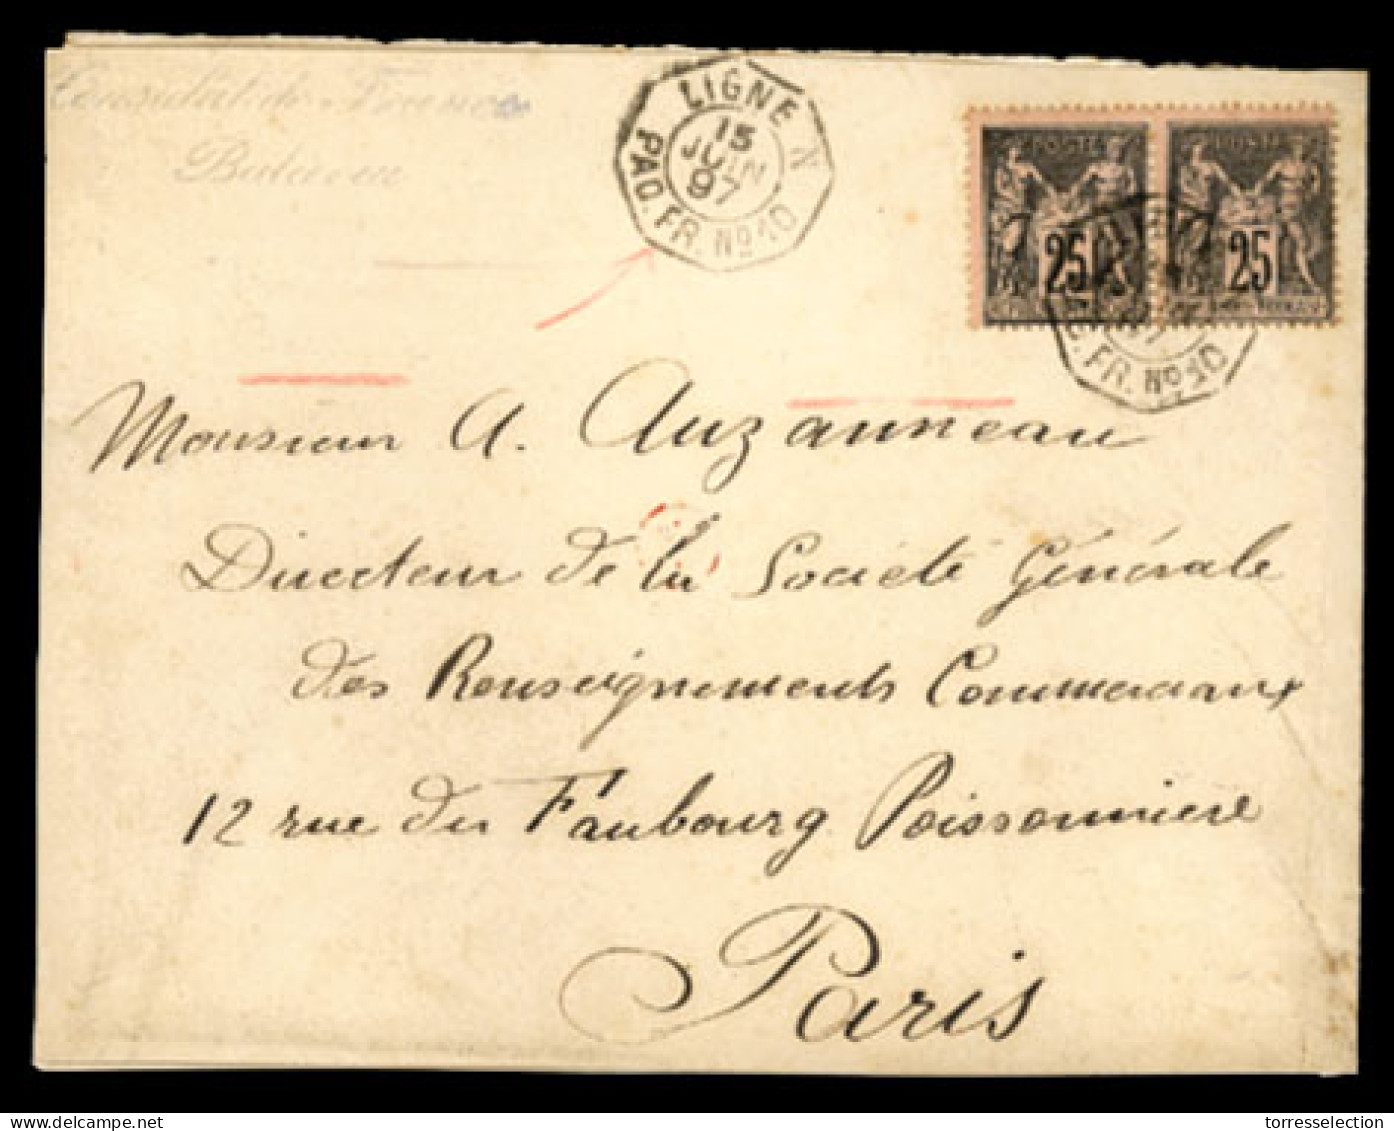 Consulat de France
Batavia
LIGNE N
15
JUIN
97
PAQ. FR. No 10
POSTE
POSTE
25
25
Q. FR. No 10
Monsieur A. Auzanneau
Directeur de la Société Générale
des Renseignements Commerciaux
12 rue du Faubourg Poissonnière
Paris
torresselection